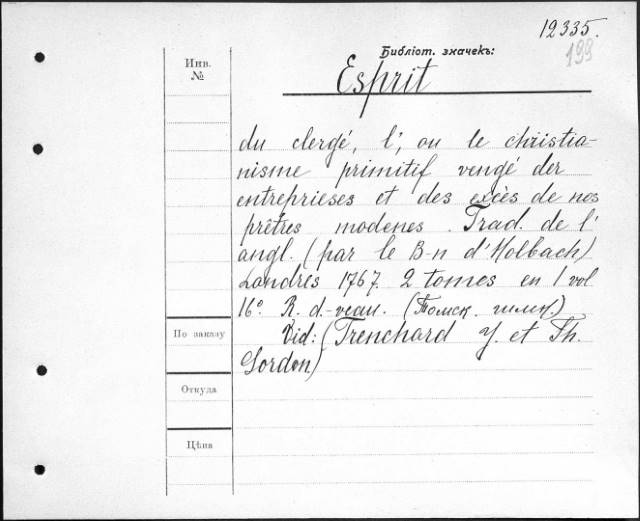 12335.
199
Библіот. значекъ:
Инв.
№
Esprit
du clergé, l', ou le christia-
nisme primitif vengé der
entreprieses et des excès de nos
prêtres modenes. Trad. de l'
angl. (par le B-n d'Holbach)
Landres 1767. 2 tomes en 1 vol
16°. R. d.-veau. (Томск. гимн.)
Vid: (Trenchard J. et Th.
Gordon)
По заказу
Откуда
Цѣна